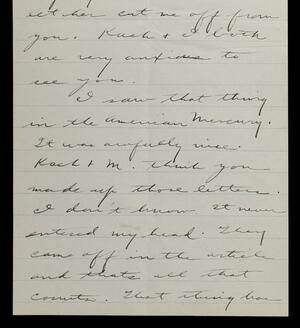 let her cut me off from
you. Kach & I both
are very anxious to
see you.
I saw that thing
in the American Mercury.
It was awfully nice.
Kach & M. think you
made up those letters.
I don't know. It never
entered my head. They
can off in the article
and thats all that
counts. That thing